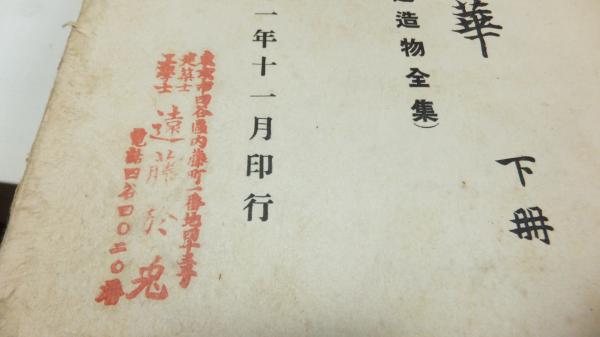 華
下冊
造物全集）
一年十一月印行
東京市四谷區内藤町一番地
建築士
工學士
遠藤於菟
電話四谷四〇二〇番